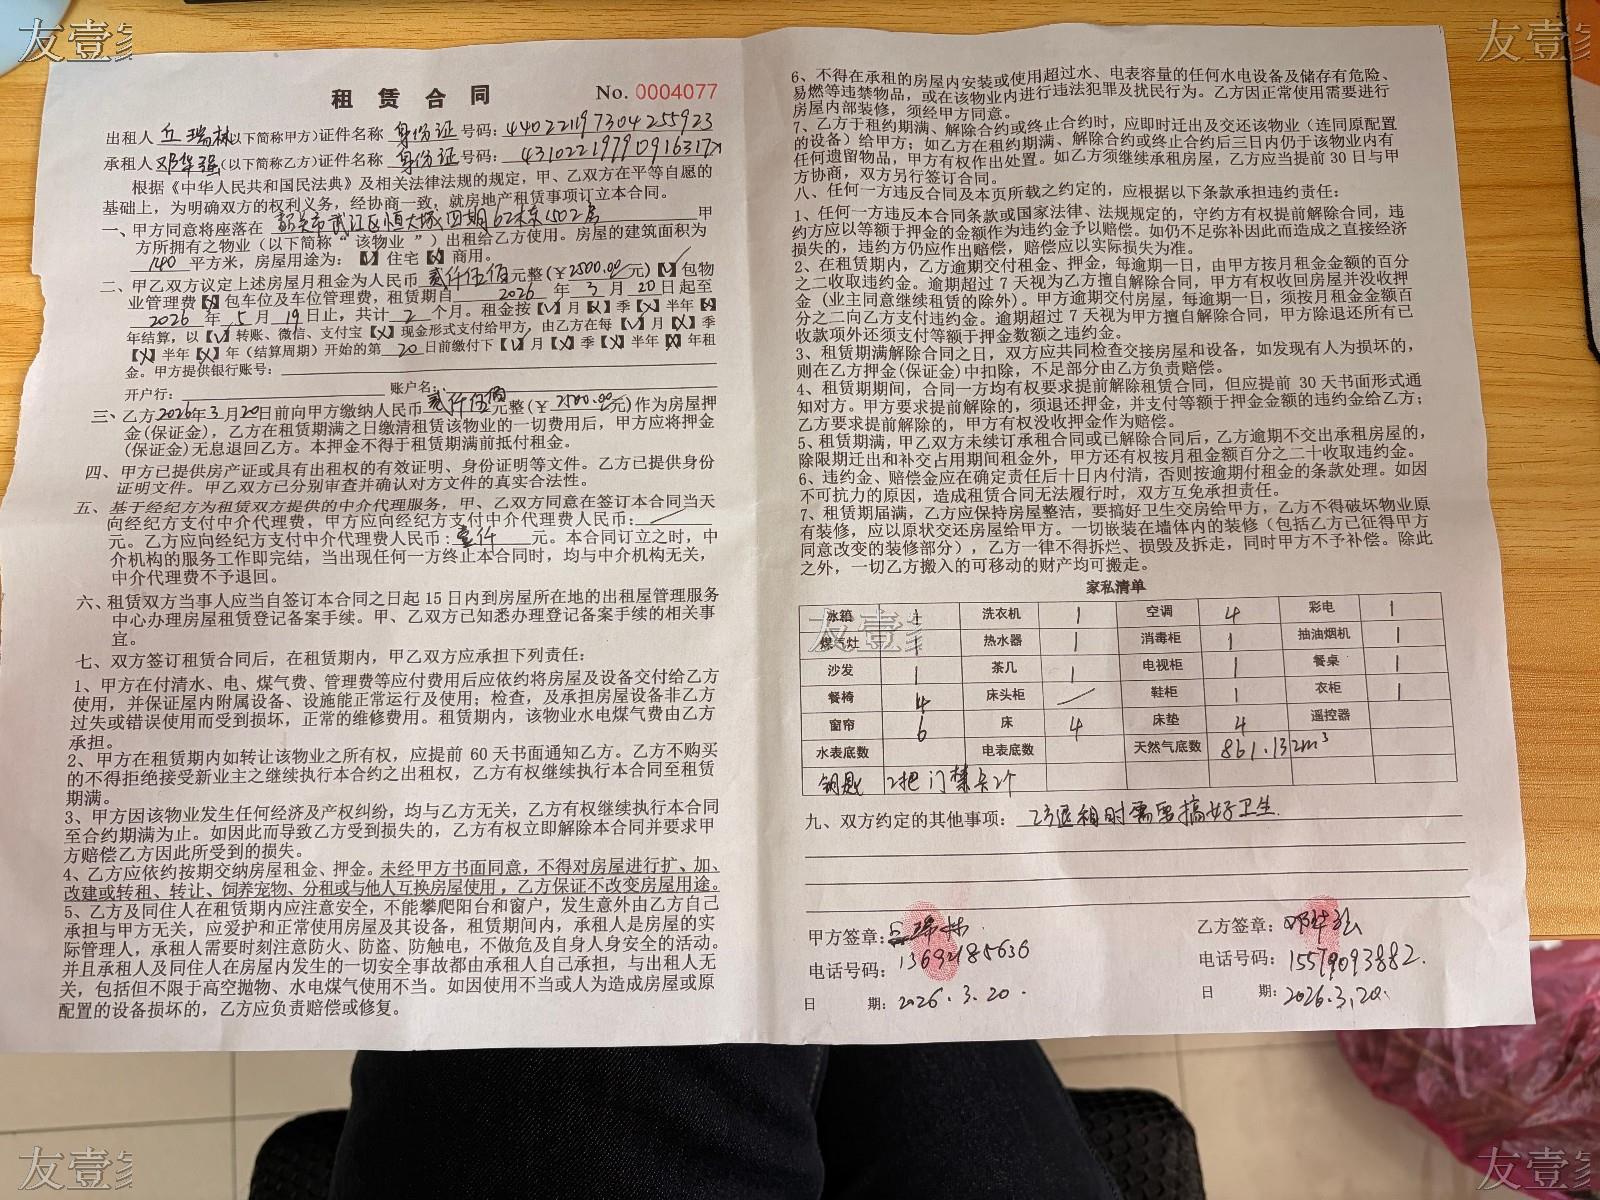 友壹
友壹
租 赁 合 同
No. 0004077
出租人 丘瑞林(以下简称甲方)证件名称 身份证 号码：440221197304255923
承租人 邓华强(以下简称乙方)证件名称 身份证 号码：43102219790916317X
根据《中华人民共和国民法典》及相关法律法规的规定，甲、乙双方在平等自愿的
基础上，为明确双方的权利义务，经协商一致，就房地产租赁事项订立本合同。
一、甲方同意将座落在 韶关市武江区恒大城四期62栋1502房 甲
方所拥有之物业（以下简称“该物业”）出租给乙方使用。房屋的建筑面积为
140 平方米，房屋用途为：【√】住宅【X】商用。
二、甲乙双方议定上述房屋月租金为人民币 贰仟伍佰元整(￥2500.00元)【√】包物
业管理费【X】包车位及车位管理费，租赁期自 2026 年 3 月 20 日起至
2026 年 5 月 19 日止，共计 2 个月。租金按【√】月【X】季【X】半年【X】
年结算，以【√】转账、微信、支付宝【X】现金形式支付给甲方，由乙方在每【√】月【X】季
【X】半年【X】年（结算周期）开始的第 20 日前缴付下【√】月【X】季【X】半年【X】年租
金。甲方提供银行账号：
开户行： 账户名：
三、乙方2026年3月20日前向甲方缴纳人民币 贰仟伍佰元整(￥ 2500.00元)作为房屋押
金(保证金)，乙方在租赁期满之日缴清租赁该物业的一切费用后，甲方应将押金
(保证金)无息退回乙方。本押金不得于租赁期满前抵付租金。
四、甲方已提供房产证或具有出租权的有效证明、身份证明等文件。乙方已提供身份
证明文件。甲乙双方已分别审查并确认对方文件的真实合法性。
五、基于经纪方为租赁双方提供的中介代理服务，甲、乙双方同意在签订本合同当天
向经纪方支付中介代理费，甲方应向经纪方支付中介代理费人民币：/
元。乙方应向经纪方支付中介代理费人民币：壹仟 元。本合同订立之时，中
介机构的服务工作即完结，当出现任何一方终止本合同时，均与中介机构无关，
中介代理费不予退回。
六、租赁双方当事人应当自签订本合同之日起 15 日内到房屋所在地的出租屋管理服务
中心办理房屋租赁登记备案手续。甲、乙双方已知悉办理登记备案手续的相关事
宜。
七、双方签订租赁合同后，在租赁期内，甲乙双方应承担下列责任：
1、甲方在付清水、电、煤气费、管理费等应付费用后应依约将房屋及设备交付给乙方
使用，并保证屋内附属设备、设施能正常运行及使用；检查，及承担房屋设备非乙方
过失或错误使用而受到损坏，正常的维修费用。租赁期内，该物业水电煤气费由乙方
承担。
2、甲方在租赁期内如转让该物业之所有权，应提前 60 天书面通知乙方。乙方不购买
的不得拒绝接受新业主之继续执行本合约之出租权，乙方有权继续执行本合同至租赁
期满。
3、甲方因该物业发生任何经济及产权纠纷，均与乙方无关，乙方有权继续执行本合同
至合约期满为止。如因此而导致乙方受到损失的，乙方有权立即解除本合同并要求甲
方赔偿乙方因此所受到的损失。
4、乙方应依约按期交纳房屋租金、押金。未经甲方书面同意，不得对房屋进行扩、加、
改建或转租、转让、饲养宠物、分租或与他人互换房屋使用，乙方保证不改变房屋用途。
5、乙方及同住人在租赁期内应注意安全，不能攀爬阳台和窗户，发生意外由乙方自己
承担与甲方无关，应爱护和正常使用房屋及其设备，租赁期间内，承租人是房屋的实
际管理人，承租人需要时刻注意防火、防盗、防触电，不做危及自身人身安全的活动。
并且承租人及同住人在房屋内发生的一切安全事故都由承租人自己承担，与出租人无
关，包括但不限于高空抛物、水电煤气使用不当。如因使用不当或人为造成房屋或原
配置的设备损坏的，乙方应负责赔偿或修复。
6、不得在承租的房屋内安装或使用超过水、电表容量的任何水电设备及储存有危险、
易燃等违禁物品，或在该物业内进行违法犯罪及扰民行为。乙方因正常使用需要进行
房屋内部装修，须经甲方同意。
7、乙方于租约期满、解除合约或终止合约时，应即时迁出及交还该物业（连同原配置
的设备）给甲方；如乙方在租约期满、解除合约或终止合约后三日内仍于该物业内有
任何遗留物品，甲方有权作出处置。如乙方须继续承租房屋，乙方应当提前 30 日与甲
方协商，双方另行签订合同。
八、任何一方违反合同及本页所载之约定的，应根据以下条款承担违约责任：
1、任何一方违反本合同条款或国家法律、法规规定的，守约方有权提前解除合同，违
约方应以等额于押金的金额作为违约金予以赔偿。如仍不足弥补因此而造成之直接经济
损失的，违约方仍应作出赔偿，赔偿应以实际损失为准。
2、在租赁期内，乙方逾期交付租金、押金，每逾期一日，由甲方按月租金金额的百分
之二收取违约金。逾期超过 7 天视为乙方擅自解除合同，甲方有权收回房屋并没收押
金（业主同意继续租赁的除外）。甲方逾期交付房屋，每逾期一日，须按月租金金额百
分之二向乙方支付违约金。逾期超过 7 天视为甲方擅自解除合同，甲方除退还所有已
收款项外还须支付等额于押金数额之违约金。
3、租赁期满解除合同之日，双方应共同检查交接房屋和设备，如发现有人为损坏的，
则在乙方押金(保证金)中扣除，不足部分由乙方负责赔偿。
4、租赁期期间，合同一方均有权要求提前解除租赁合同，但应提前 30 天书面形式通
知对方。甲方要求提前解除的，须退还押金，并支付等额于押金金额的违约金给乙方；
乙方要求提前解除的，甲方有权没收押金作为赔偿。
5、租赁期满，甲乙双方未续订承租合同或已解除合同后，乙方逾期不交出承租房屋的，
除限期迁出和补交占用期间租金外，甲方还有权按月租金额百分之二十收取违约金。
6、违约金、赔偿金应在确定责任后十日内付清，否则按逾期付租金的条款处理。如因
不可抗力的原因，造成租赁合同无法履行时，双方互免承担责任。
7、租赁期届满，乙方应保持房屋整洁，要搞好卫生交房给甲方，乙方不得破坏物业原
有装修，应以原状交还房屋给甲方。一切嵌装在墙体内的装修（包括乙方已征得甲方
同意改变的装修部分），乙方一律不得拆烂、损毁及拆走，同时甲方不予补偿。除此
之外，一切乙方搬入的可移动的财产均可搬走。
家私清单
冰箱 1 洗衣机 1 空调 4 彩电 1
煤气灶 1 热水器 1 消毒柜 1 抽油烟机 1
沙发 1 茶几 1 电视柜 1 餐桌 1
餐椅 4 床头柜 / 鞋柜 1 衣柜 1
窗帘 6 床 4 床垫 4 遥控器
水表底数 电表底数 天然气底数 861.132m³
钥匙 2把 门禁卡2个
友壹
九、双方约定的其他事项：乙方退租时需要搞好卫生.
甲方签章：丘瑞林 乙方签章：邓华强
电话号码：13692185636 电话号码：15579093882.
日 期：2026.3.20. 日 期：2026.3.20.
友壹
友壹